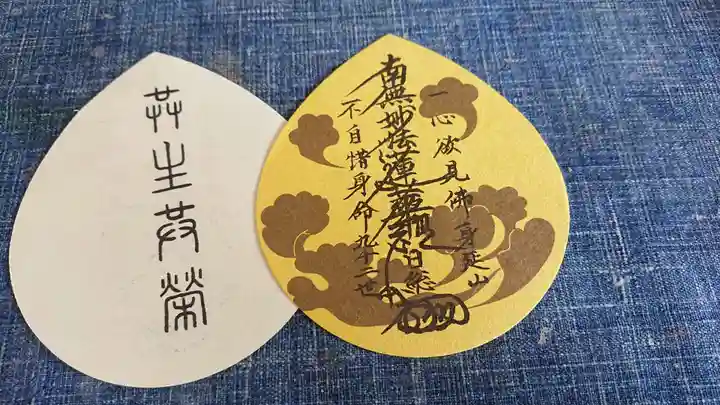 共生共栄
一心欲見佛 身延山
南無妙法蓮華経 日総
不自惜身命 九十二世